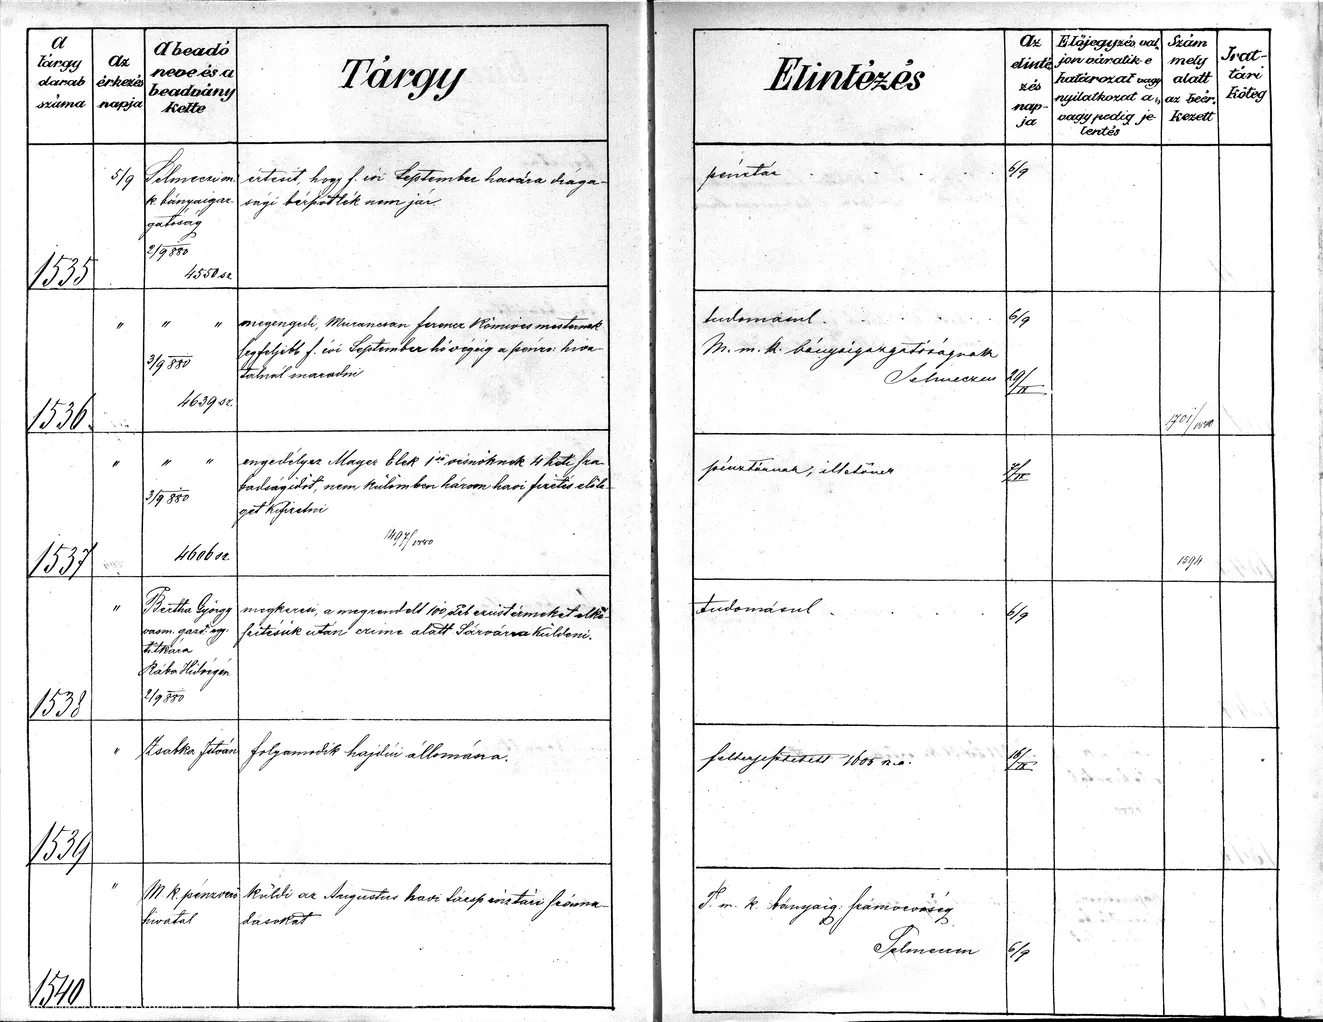 A tárgy darab száma
Az érkezés napja
A beadó neve és a beadvány kelte
Tárgy
Elintézés
Az elintézés napja
Előjegyzés, valjon váratik e határozat vagy nyilatkozat a,, vagy pedig jelentés
Szám mely alatt az beérkezett
Irattári köteg
1535
5/9
Selmeczi m.
k. bányaigaz-
gatóság
2/9 880
4550 sz.
értesit, hogy f. évi September havára drága-
sági bérpótlék nem jár
pénztár
6/9
1536.
" " "
3/9 880
4639 sz.
megengedi, Ferencz Kőmives mesternek
legfeljebb f. évi September hó végéig a pénzv. hiva-
talnál maradni
tudomásul.
M. m. k. bányaigazgatóságnak
Selmeczen
6/9
29/IX
1701/1880
1537
" " "
3/9 880
4606 sz.
engedélyez Mayer Elek 4 heti sza-
badságidőt, nem külömben három havi fizetés előle-
get kifizetni
1497/1880
pénztárnak, illetőnek
7/IX
1594
1538
"
Bertha György
vasm. gazd. eg.
titkára
Rába Hidvégen
2/9 880
megkeresi, a megrendelt 100 db ezüstérmeket elké-
szitésük után czime alatt Sárvárra küldeni.
tudomásul
6/9
1539
"
Zsabka István
folyamodik hajdúi állomásra.
felterjesztetett 1605 sz. a.
16/IX
1540
"
M. k. pénzverő
hivatal
küldi az Augustus havi társpénztári száma-
dásokat
T. m. k. bányaig. számvevőség
Selmeczen
6/9